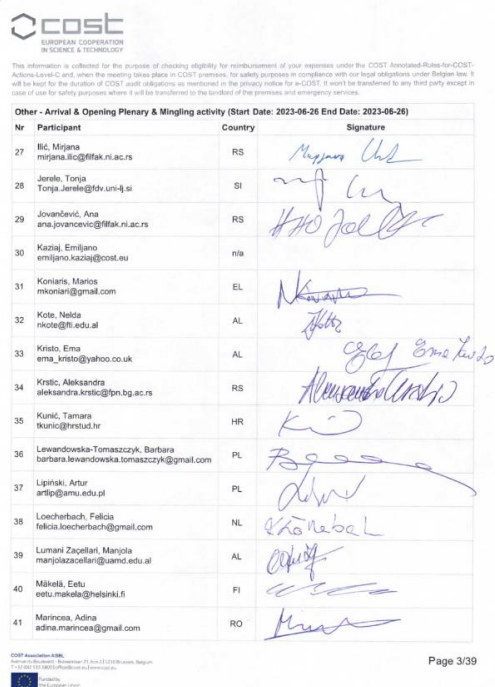 cost
EUROPEAN COOPERATION
IN SCIENCE & TECHNOLOGY
This information is collected for the purpose of checking eligibility for reimbursement of your expenses under the COST Annotated-Rules-for-COST-
Actions-Level-C and, when the meeting takes place in COST premises, for safety purposes in compliance with our legal obligations under Belgian law. It
will be kept for the duration of COST audit obligations as mentioned in the privacy notice for e-COST. It won't be transferred to any third party except in
case of use for safety purposes where it will be transferred to the landlord of the premises and emergency services.
Other - Arrival & Opening Plenary & Mingling activity (Start Date: 2023-06-26 End Date: 2023-06-26)
Nr Participant Country Signature
27 Ilić, Mirjana
mirjana.ilic@filfak.ni.ac.rs RS
28 Jerele, Tonja
Tonja.Jerele@fdv.uni-lj.si SI
29 Jovančević, Ana
ana.jovancevic@filfak.ni.ac.rs RS
30 Kaziaj, Emiljano
emiljano.kaziaj@cost.eu n/a
31 Koniaris, Marios
mkoniari@gmail.com EL
32 Kote, Nelda
nkote@fti.edu.al AL
33 Kristo, Ema
ema_kristo@yahoo.co.uk AL
34 Krstic, Aleksandra
aleksandra.krstic@fpn.bg.ac.rs RS
35 Kunić, Tamara
tkunic@hrstud.hr HR
36 Lewandowska-Tomaszczyk, Barbara
barbara.lewandowska.tomaszczyk@gmail.com PL
37 Lipiński, Artur
artlip@amu.edu.pl PL
38 Loecherbach, Felicia
felicia.loecherbach@gmail.com NL
39 Lumani Zaçellari, Manjola
manjolazacellari@uamd.edu.al AL
40 Mäkelä, Eetu
eetu.makela@helsinki.fi FI
41 Marincea, Adina
adina.marincea@gmail.com RO
COST Association AISBL
Page 3/39
Funded by
the European Union